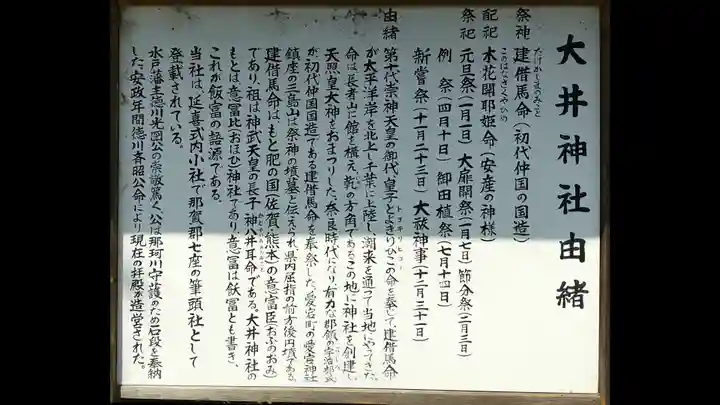 大井神社由緒
祭神 建借馬命(初代仲国の国造)
たけかしまのみこと
配祀 木花開耶姫命(安産の神様)
このはなさくやひめ
祭祀 元旦祭(一月一日)大扉開祭(一月七日)節分祭(二月三日)
例 祭(四月十日)御田植祭(七月十四日)
新嘗祭(十一月二十三日)大祓神事(十二月三十一日)
由緒 第十代崇神天皇の御代、皇子とよきいりひこの命を奉じて建借馬命
が太平洋岸を北上し千葉に上陸し、潮来を通って当地にやってきた。
命は長者山に館を構え、乾の方角であるこの地に神社を創建し、
天照皇大神をおまつりした。奈良時代になり有力な郡領の宇治部
が初代仲国国造である建借馬命を奉祭した。愛宕町の愛宕神社
鎮座の三島山は祭神の墳墓と伝えられ、県内屈指の前方後円墳である。
建借馬命はもと肥の国(佐賀・熊本)の意富臣(おふのおみ)
であり、祖は神武天皇の長子神八井耳命である。大井神社の
もとは意冨比(おほひ)神社であり、意冨は飫富とも書き、
これが飯富の語源である。
当社は、延喜式内小社で那賀郡七座の筆頭社として
登載されている。
水戸藩主徳川光圀公の崇敬篤く、公は那珂川守護のため石段を奉納
した。安政年間徳川斉昭公命により現在の拝殿が造営された。